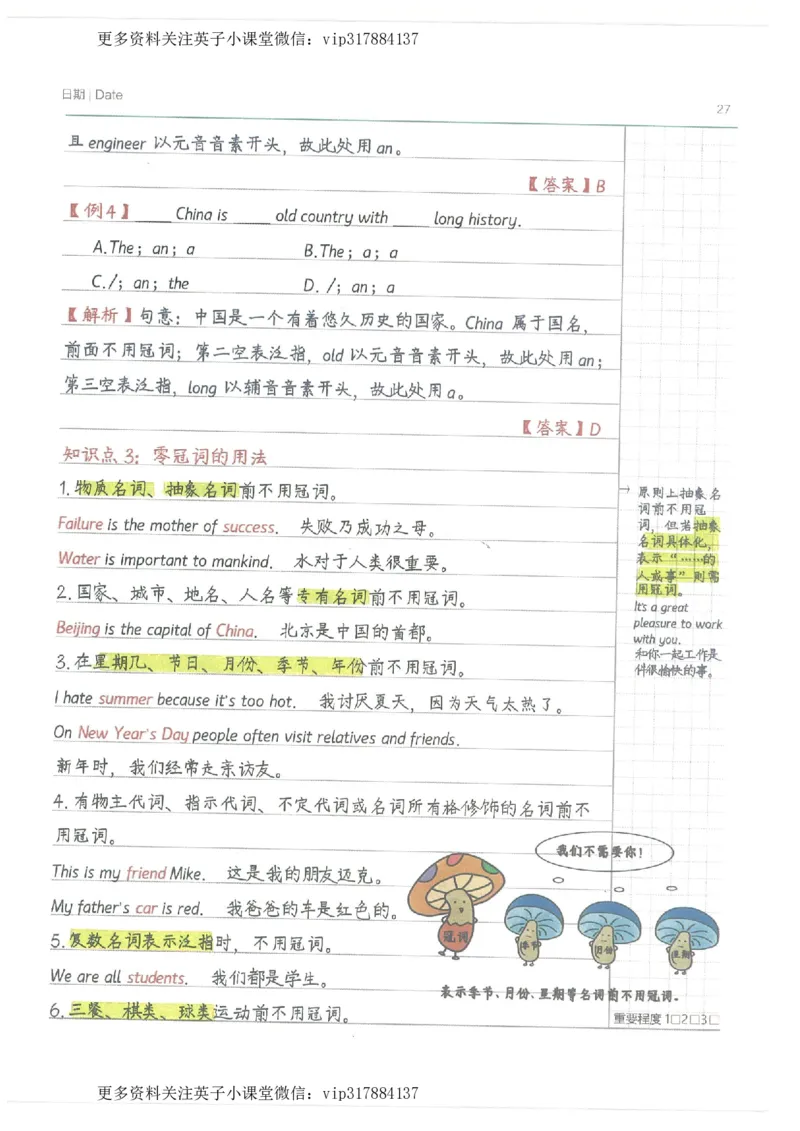 更多资料关注英子小课堂微信：vip317884137
日期 | Date
27
且 engineer 以元音音素开头，故此处用 an。
【答案】B
【例4】_____ China is _____ old country with _____ long history.
A.The；an；a
B.The；a；a
C./；an；the
D. /；an；a
【解析】句意：中国是一个有着悠久历史的国家。China 属于国名，
前面不用冠词；第二空表泛指，old 以元音音素开头，故此处用 an；
第三空表泛指，long 以辅音音素开头，故此处用 a。
【答案】D
知识点 3：零冠词的用法
1.物质名词、抽象名词前不用冠词。
Failure is the mother of success. 失败乃成功之母。
Water is important to mankind. 水对于人类很重要。
2.国家、城市、地名、人名等专有名词前不用冠词。
Beijing is the capital of China. 北京是中国的首都。
3.在星期几、节日、月份、季节、年份前不用冠词。
I hate summer because it's too hot. 我讨厌夏天，因为天气太热了。
On New Year's Day people often visit relatives and friends.
新年时，我们经常走亲访友。
4.有物主代词、指示代词、不定代词或名词所有格修饰的名词前不
用冠词。
This is my friend Mike. 这是我的朋友迈克。
My father's car is red. 我爸爸的车是红色的。
5.复数名词表示泛指时，不用冠词。
We are all students. 我们都是学生。
6.三餐、棋类、球类运动前不用冠词。
→ 原则上抽象名
词前不用冠
词，但若抽象
名词具体化，
表示“……的
人或事”则需
用冠词。
It's a great
pleasure to work
with you.
和你一起工作是
件很愉快的事。
我们不需要你！
冠词
季节
月份
星期
表示季节、月份、星期等名词前不用冠词。
重要程度 1□2□3□
更多资料关注英子小课堂微信：vip317884137